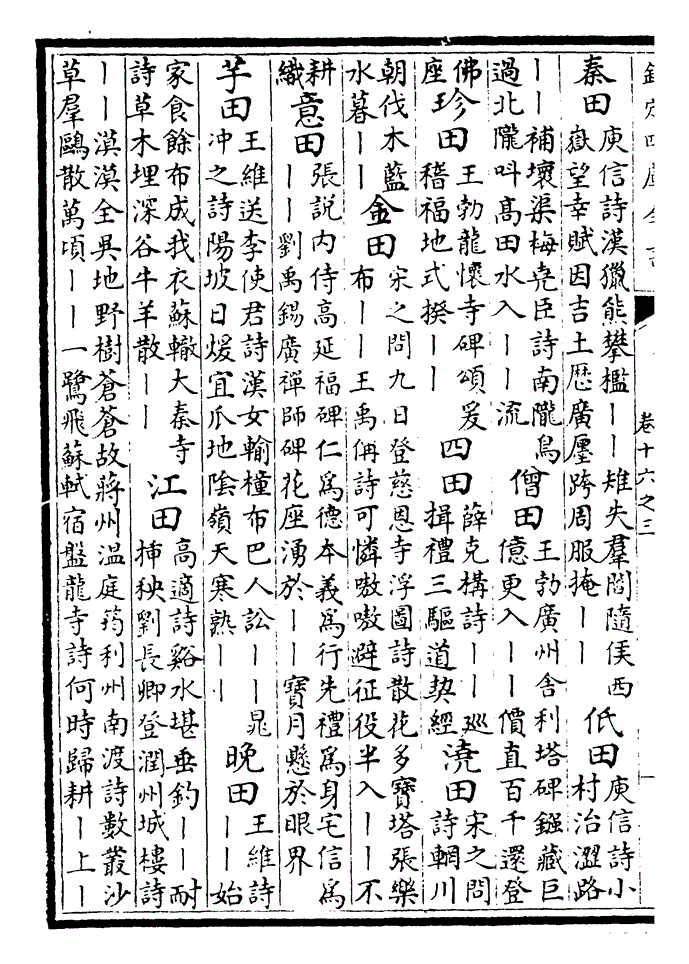 欽定四庫全書
卷十六之三
秦田
庾信詩漢獵熊攀檻丨丨雉失羣閻隨侯西
嶽望幸賦因吉土歴廣廛跨周服掩丨丨
低田
庾信詩小
村治澀路
丨丨補壞渠梅堯臣詩南隴鳥
過北隴呌髙田水入丨丨流
僧田
王勃廣州舎利塔碑鏹藏巨
億更入丨丨價直百千還登
佛
座
珍田
王勃龍懷寺碑頌爰
稽福地式揆丨丨
四田
薛克構詩丨丨廵
揖禮三驅道契經
澆田
宋之問
詩輞川
朝伐木藍
水暮丨丨
金田
宋之問九日登慈恩寺浮圖詩散花多寳塔張樂
布丨丨王禹偁詩可憐嗷嗷避征役半入丨丨不
耕
織
意田
張説内侍髙延福碑仁為徳本義為行先禮為身宅信為
丨丨劉禹錫廣禪師碑花座湧於丨丨寳月懸於眼界
芋田
王維送李使君詩漢女輸橦布巴人訟丨丨晁
冲之詩陽坡日煖宜爪地陰嶺天寒熟丨丨
晚田
王維詩
丨丨始
家食餘布成我衣蘇轍大秦寺
詩草木埋深谷牛羊散丨丨
江田
髙適詩谿水堪垂釣丨丨耐
揷秧劉長卿登潤州城樓詩
丨丨漠漠全吳地野樹蒼蒼故蔣州温庭筠利州南渡詩數叢沙
草羣鷗散萬頃丨丨一鷺飛蘇軾宿盤龍寺詩何時歸耕丨上丨